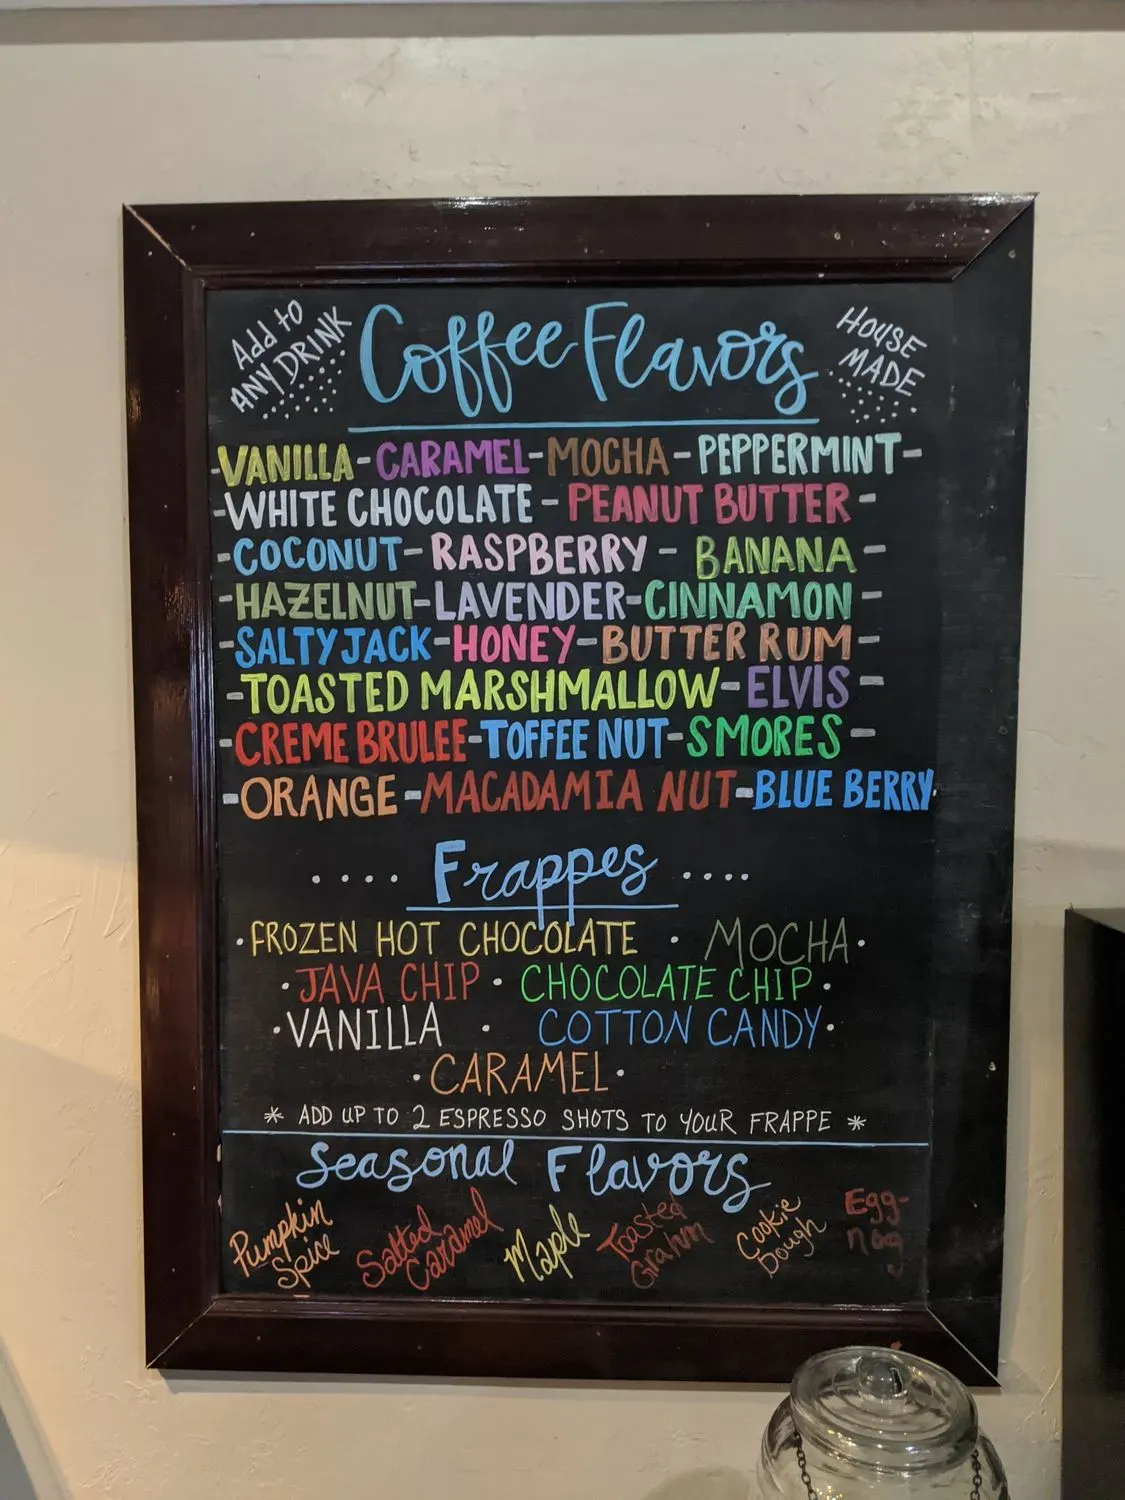 Add to
ANY DRINK
Coffee Flavors
HOUSE
MADE
-VANILLA-CARAMEL-MOCHA-PEPPERMINT-
-WHITE CHOCOLATE-PEANUT BUTTER-
-COCONUT-RASPBERRY-BANANA-
-HAZELNUT-LAVENDER-CINNAMON-
-SALTY JACK-HONEY-BUTTER RUM-
-TOASTED MARSHMALLOW-ELVIS-
-CREME BRULEE-TOFFEE NUT-SMORES-
-ORANGE-MACADAMIA NUT-BLUE BERRY-
.... Frappes ....
·FROZEN HOT CHOCOLATE · MOCHA·
·JAVA CHIP · CHOCOLATE CHIP·
·VANILLA · COTTON CANDY·
·CARAMEL·
* ADD UP TO 2 ESPRESSO SHOTS TO YOUR FRAPPE *
Seasonal Flavors
Pumpkin
Spice
Salted
Caramel
Maple
Toasted
Grahm
Cookie
Dough
Egg-
nog